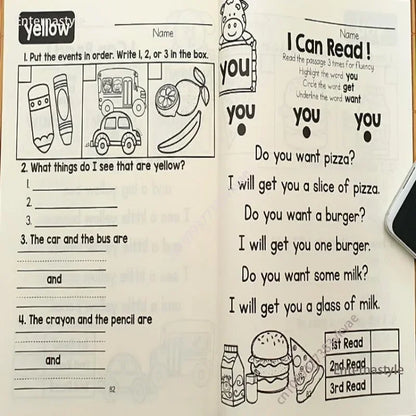 yellow
Name
1. Put the events in order. Write 1, 2, or 3 in the box.
2. What things do I see that are yellow?
1.
2.
3.
3. The car and the bus are
and
4. The crayon and the pencil are
and
82
you
Name
I Can Read!
Read the passage 3 times for fluency
Highlight the word you
Circle the word get
Underline the word want
you you you
Do you want pizza?
I will get you a slice of pizza.
Do you want a burger?
I will get you one burger.
Do you want some milk?
I will get you a glass of milk.
1st Read
2nd Read
3rd Read